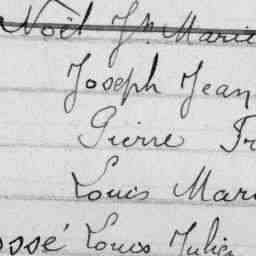 Noël Jn Marie
Joseph Jean
Pierre Fr
Louis Mari
ossé Louis Julien